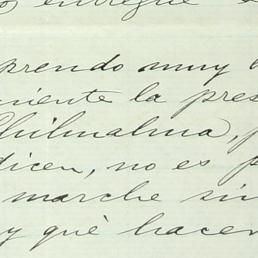 entregué
prendo muy b
niente la pres
Chilmalma, p
dicen, no es p
marche sin
y qué hacer